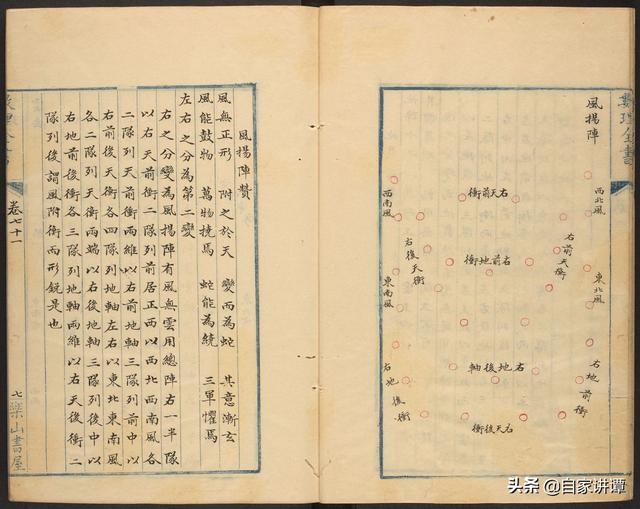 數理全書
風揚陣
西北風
東北風
右地前衝
右前天衝
右天前衝
右前地衝
右地後軸
右天後衝
右後天衝
西南風
東南風
右地後衝
風揚陣贊
風無正形 附之於天 變而為蛇 其意漸玄
風能鼓物 萬物撓焉 蛇能為繞 三軍懼焉
左右之分為第二變
右之分變為風揚陣有風無雲用總陣右一半隊
以右天前衝二隊列前居正西以西北西南風各
二隊列天前衝兩維以右前地軸三隊列前中以
右前後天衝各四隊列地軸左右以東北東南風
各二隊列天衝兩端以右後地軸三隊列後中以
右地前後衝各三隊列地軸兩維以右天後衝二
隊列後謂風附衝而形銳是也
卷七十一
七 樂山書屋
头条 @自家讲谭